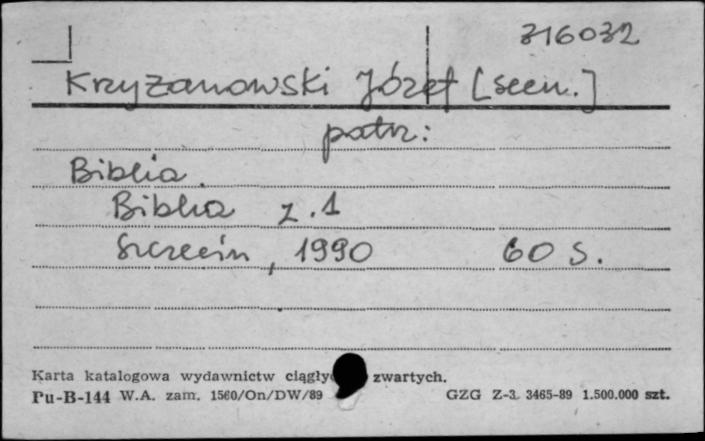 316032
Krzyżanowski Józef [scen.]
patrz:
Biblia.
Biblia z. 1
Szczecin, 1990 60 s.
Karta katalogowa wydawnictw zwartych.
Pu-B-144 W.A. zam. 1560/On/DW/89 GZG Z-3. 3465-89 1.500.000 szt.